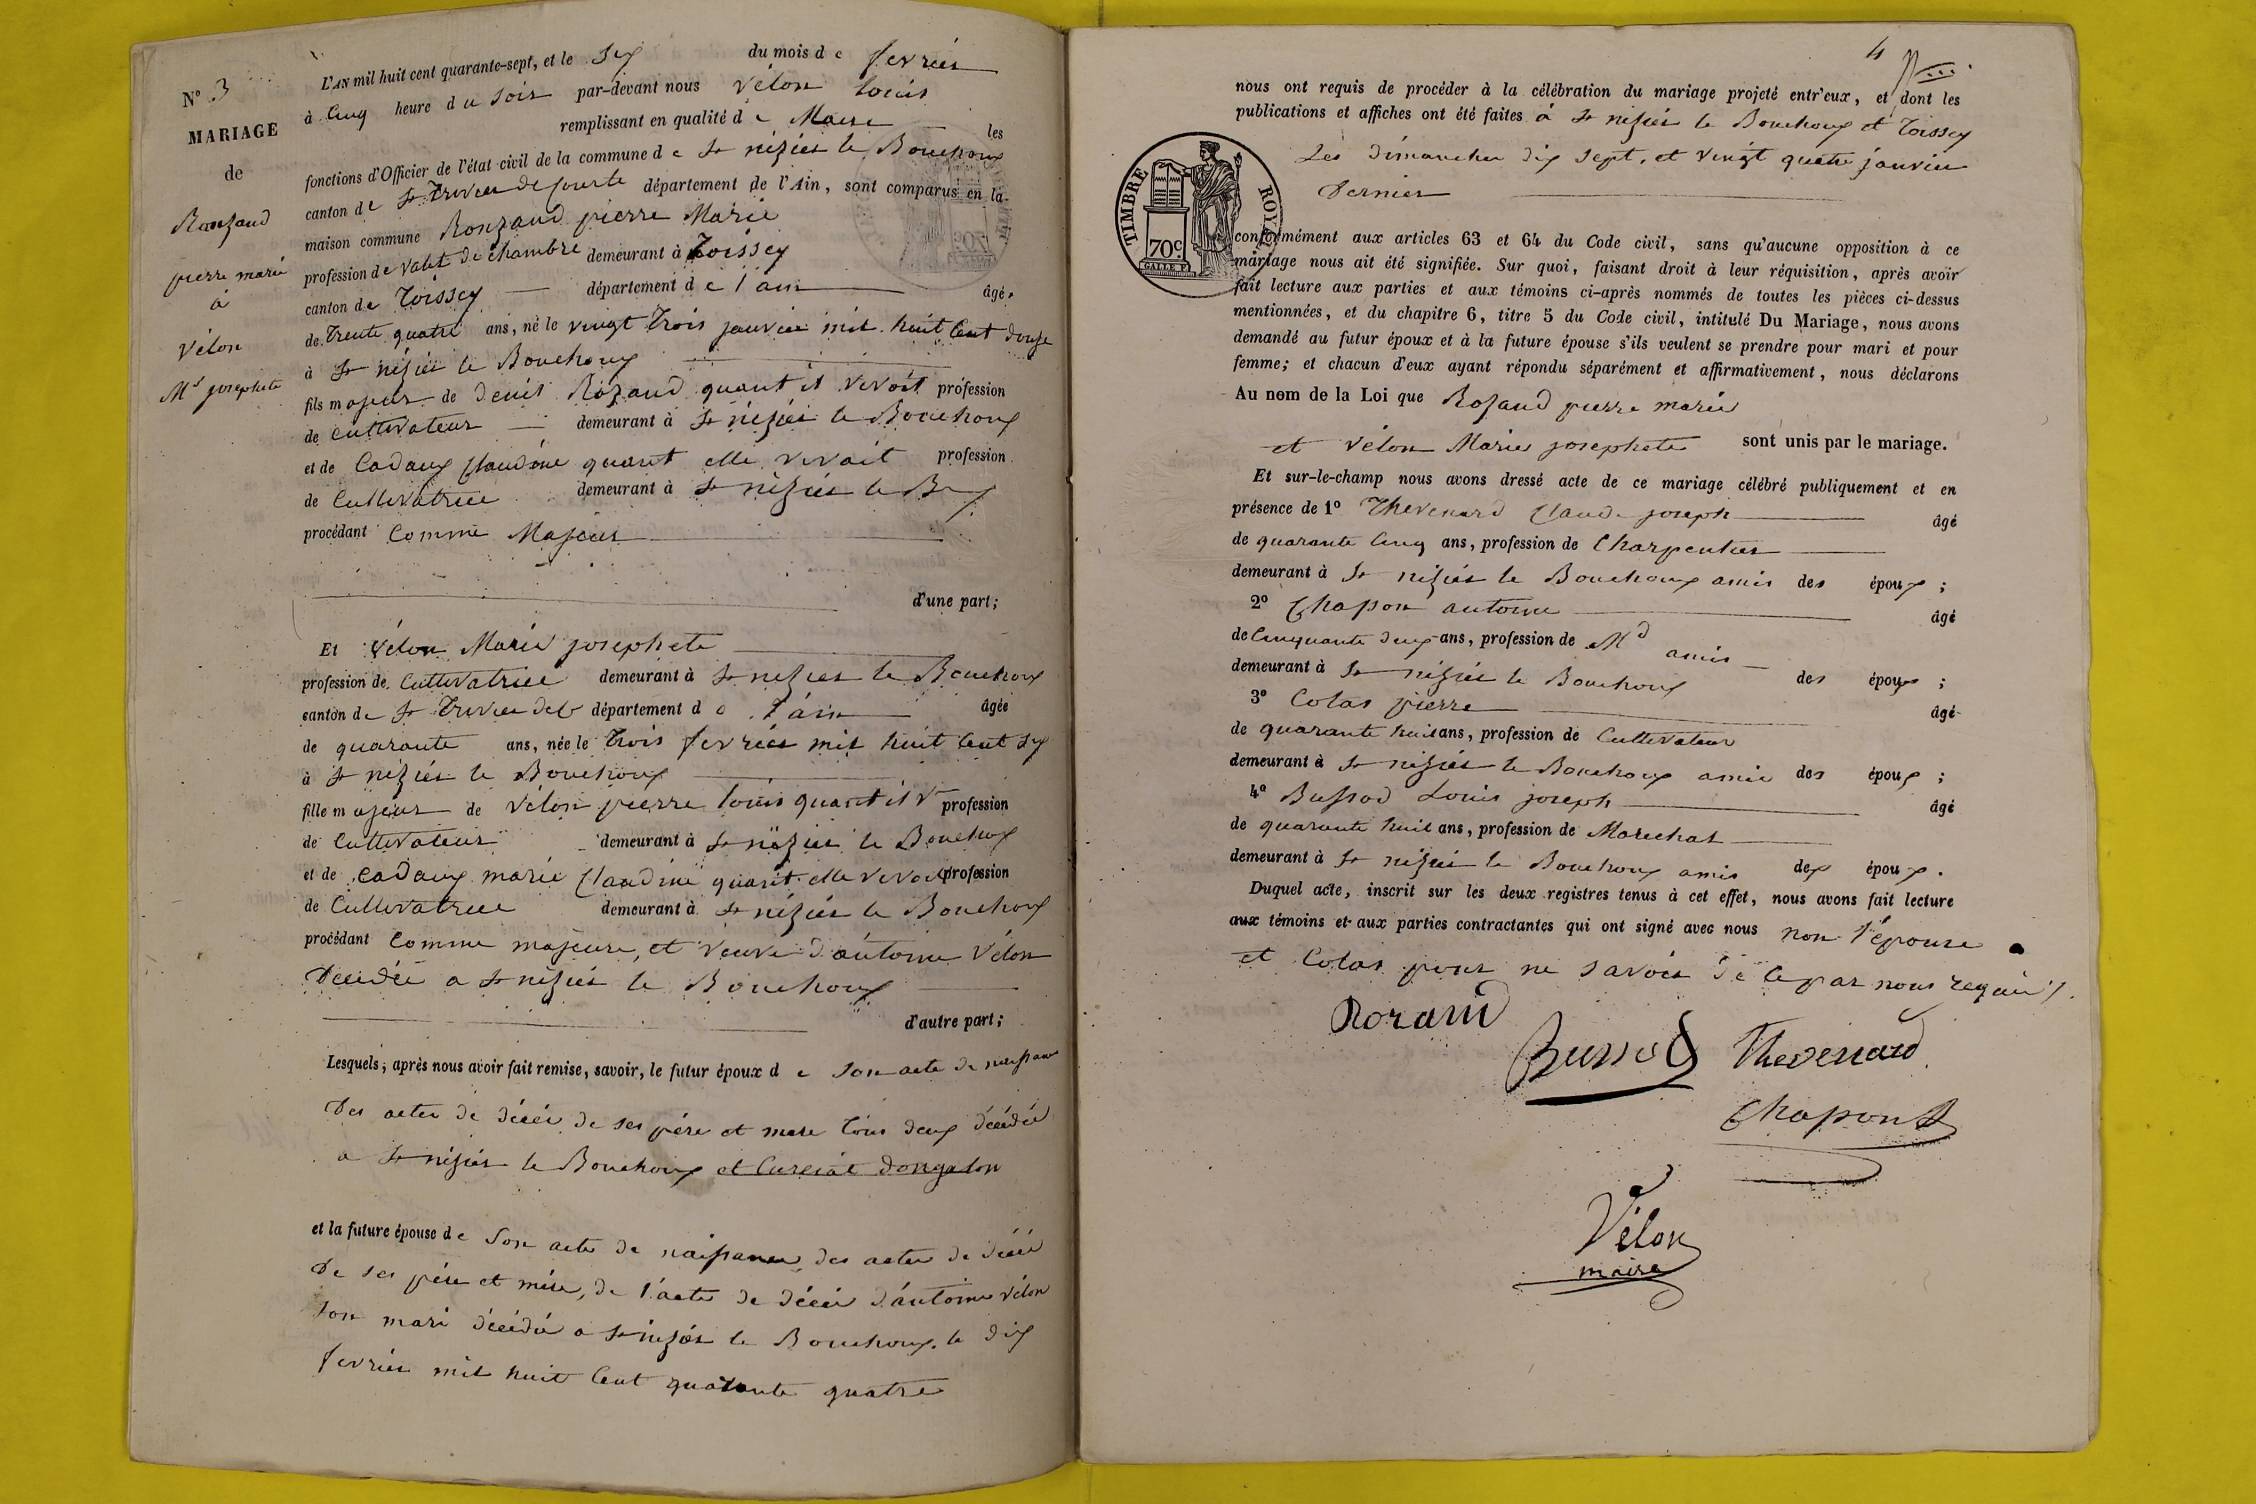 N° 3
MARIAGE
de
Ronzand
pierre marie
à
Vélon
Mie josephete
L'AN mil huit cent quarante-sept, et le six du mois de fevrier
à cinq heure du soir par-devant nous Vélon Louis
remplissant en qualité de Maire les
fonctions d'Officier de l'état civil de la commune de St nézier le Bouchoux
canton de St Trivier de Courte département de l'Ain, sont comparus en la
maison commune Ronzand pierre Marie
profession de valet de chambre demeurant à Toissey
canton de Toissey département de l'ain âgé
de Trente quatre ans, né le vingt Trois janvier mil huit Cent douze
à St nézier le Bouchoux
fils majeur de denis Rozand quant il vivoit profession
de cultivateur demeurant à St nézier le Bouchoux
et de Cadaux Claudine quant elle vivait profession
de Cultivatrice demeurant à St nézier le Bx
procédant Comme Majeur
d'une part;
Et Vélon Marie josephete
profession de Cultivatrice demeurant à St nezier le Bouchoux
canton de St Trivier de C département de l'ain âgée
de quarante ans, née le Trois fevrier mil huit Cent six
à St nézier le Bouchoux
fille majeur de Vélon pierre louis quant il v profession
de Cultivateur demeurant à St nézier le Bouchox
et de Cadaux marie Claudine quant elle vivoit profession
de Cultivatrice demeurant à St nézier le Bouchoux
procédant Comme majeure, et veuve d'antoine Vélon
décédé a St nézier le Bouchoux
d'autre part;
Lesquels, après nous avoir fait remise, savoir, le futur époux de Son acte de naissance
Des actes de décès de ses père et mere tous deux décédés
a St nézier le Bouchoux et Curciat dongalon
et la future épouse de Son acte de naissance, des actes de décès
De ses père et mère, de l'acte de décès d'antoine vélon
Son mari décédé a St nézier le Bouchoux. le dix
fevrier mil huit Cent quarante quatre
4
nous ont requis de procéder à la célébration du mariage projeté entr'eux, et dont les
publications et affiches ont été faites à St nézier le Bouchoux et Toissey
Les dimanches dix sept, et vingt quatre janvier
Dernier
TIMBRE ROYAL
70c
conformément aux articles 63 et 64 du Code civil, sans qu'aucune opposition à ce
mariage nous ait été signifiée. Sur quoi, faisant droit à leur réquisition, après avoir
fait lecture aux parties et aux témoins ci-après nommés de toutes les pièces ci-dessus
mentionnées, et du chapitre 6, titre 5 du Code civil, intitulé Du Mariage, nous avons
demandé au futur époux et à la future épouse s'ils veulent se prendre pour mari et pour
femme; et chacun d'eux ayant répondu séparément et affirmativement, nous déclarons
Au nom de la Loi que Rozand pierre marie
et Vélon Marie josephete sont unis par le mariage.
Et sur-le-champ nous avons dressé acte de ce mariage célébré publiquement et en
présence de 1° Thevenard Claude joseph âgé
de quarante Cinq ans, profession de Charpentier
demeurant à St nézier le Bouchoux amis des époux ;
2° Chapon antoine âgé
de Cinquante deux ans, profession de Md
demeurant à St nézier le Bouchoux amis des époux ;
3° Colas pierre âgé
de quarante huit ans, profession de Cultivateur
demeurant à St nézier le Bouchoux amis des époux ;
4° Bussod Louis joseph âgé
de quarante huit ans, profession de Marechal
demeurant à St nézier le Bouchoux amis des époux.
Duquel acte, inscrit sur les deux registres tenus à cet effet, nous avons fait lecture
aux témoins et aux parties contractantes qui ont signé avec nous non l'épouse
et Colas pour ne savoir de ce par nous requis
Rozand
Bussod Thevenard
Chapon
Vélon
maire